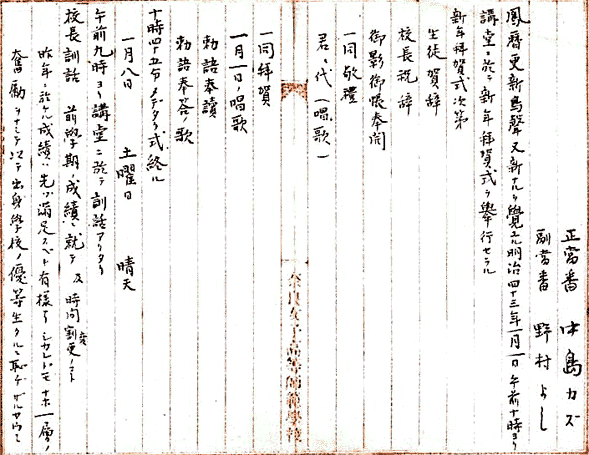 正當番 中島カズ
副當番 野村よし
鳳暦更新鳥聲又新ナルヲ覺ユ明治四十三年一月一日午前十時ヨリ
講堂ニ於テ新年拜賀式ヲ擧行セラル
新年拜賀式次第
生徒賀辞
校長祝辞
御影御帳奉開
一同敬禮
君ヶ代(唱歌)
一同拜賀
一月一日ノ唱歌
勅語奉讀
勅語奉答歌
十時四十五分メデタク式終ル
一月八日 土曜日 晴天
午前九時ヨリ講堂ニ於テ訓話アリタリ
校長訓話 前學期ノ成績ニ就テ及時間割変更ノコト
昨年ニ於ケル成績ハ先ヅ滿足スベキ有様ナリシカレドモナホ一層ノ
奮勵ヲナシテ以テ出身學校ノ優等生タルニ恥ヂザルヤウニ
奈良女子高等師範學校